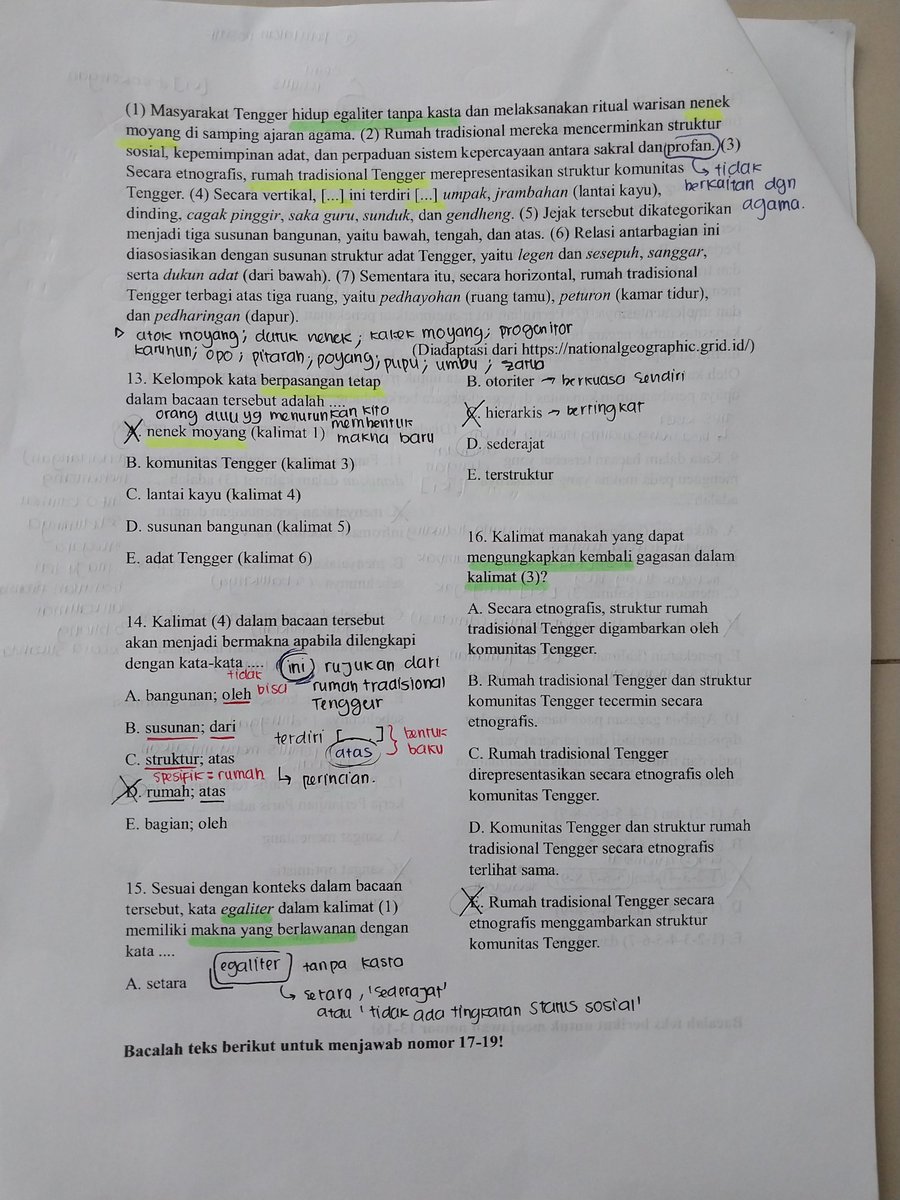 (1) Masyarakat Tengger hidup egaliter tanpa kasta dan melaksanakan ritual warisan nenek
moyang di samping ajaran agama. (2) Rumah tradisional mereka mencerminkan struktur
sosial, kepemimpinan adat, dan perpaduan sistem kepercayaan antara sakral dan profan. (3)
Secara etnografis, rumah tradisional Tengger merepresentasikan struktur komunitas
tidak
Tengger. (4) Secara vertikal, [...] ini terdiri [...] umpak, jrambahan (lantai kayu),
berkaitan dgn
dinding, cagak pinggir, saka guru, sunduk, dan gendheng. (5) Jejak tersebut dikategorikan
agama.
menjadi tiga susunan bangunan, yaitu bawah, tengah, dan atas. (6) Relasi antarbagian ini
diasosiasikan dengan susunan struktur adat Tengger, yaitu legen dan sesepuh, sanggar,
serta dukun adat (dari bawah). (7) Sementara itu, secara horizontal, rumah tradisional
Tengger terbagi atas tiga ruang, yaitu pedhayohan (ruang tamu), peturon (kamar tidur),
dan pedharingan (dapur).
atok moyang; datuk nenek; kakek moyang; progenitor
karuhun; opo; pitarah; poyang; pupu; umbu;
(Diadaptasi dari https://nationalgeographic.grid.id/)
13. Kelompok kata berpasangan tetap
dalam bacaan tersebut adalah ....
orang dulu yg menurunkan kita
membentuk
makna baru
A. nenek moyang (kalimat 1)
B. komunitas Tengger (kalimat 3)
C. lantai kayu (kalimat 4)
D. susunan bangunan (kalimat 5)
E. adat Tengger (kalimat 6)
14. Kalimat (4) dalam bacaan tersebut
akan menjadi bermakna apabila dilengkapi
dengan kata-kata ....
ini rujukan dari
rumah tradisional
Tenggur
tidak
bisa
A. bangunan; oleh
B. susunan; dari
terdiri [ ]
atas
bentuk
baku
C. struktur; atas
spesifik = rumah
perincian.
D. rumah; atas
E. bagian; oleh
15. Sesuai dengan konteks dalam bacaan
tersebut, kata egaliter dalam kalimat (1)
memiliki makna yang berlawanan dengan
kata ....
egaliter tanpa kasta
A. setara
setara, 'sederajat'
atau 'tidak ada tingkaran status sosial'
B. otoriter → berkuasa sendiri
C. hierarkis → bertingkat
D. sederajat
E. terstruktur
16. Kalimat manakah yang dapat
mengungkapkan kembali gagasan dalam
kalimat (3)?
A. Secara etnografis, struktur rumah
tradisional Tengger digambarkan oleh
komunitas Tengger.
B. Rumah tradisional Tengger dan struktur
komunitas Tengger tecermin secara
etnografis.
C. Rumah tradisional Tengger
direpresentasikan secara etnografis oleh
komunitas Tengger.
D. Komunitas Tengger dan struktur rumah
tradisional Tengger secara etnografis
terlihat sama.
E. Rumah tradisional Tengger secara
etnografis menggambarkan struktur
komunitas Tengger.
Bacalah teks berikut untuk menjawab nomor 17-19!